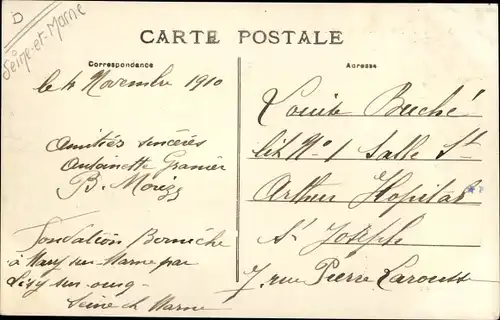 D
Seine-et-Marne
CARTE POSTALE
Correspondance
Adresse
le 4 Novembre 1910
Amitiés sincères
Antoinette Granier
B.
Fondation
à Mary sur Marne par
Lizy sur ourq
Seine et Marne
Louise Buché
lit No 1 Salle St
Arthur Hopital
St Joseph
7, rue Pierre Larousse